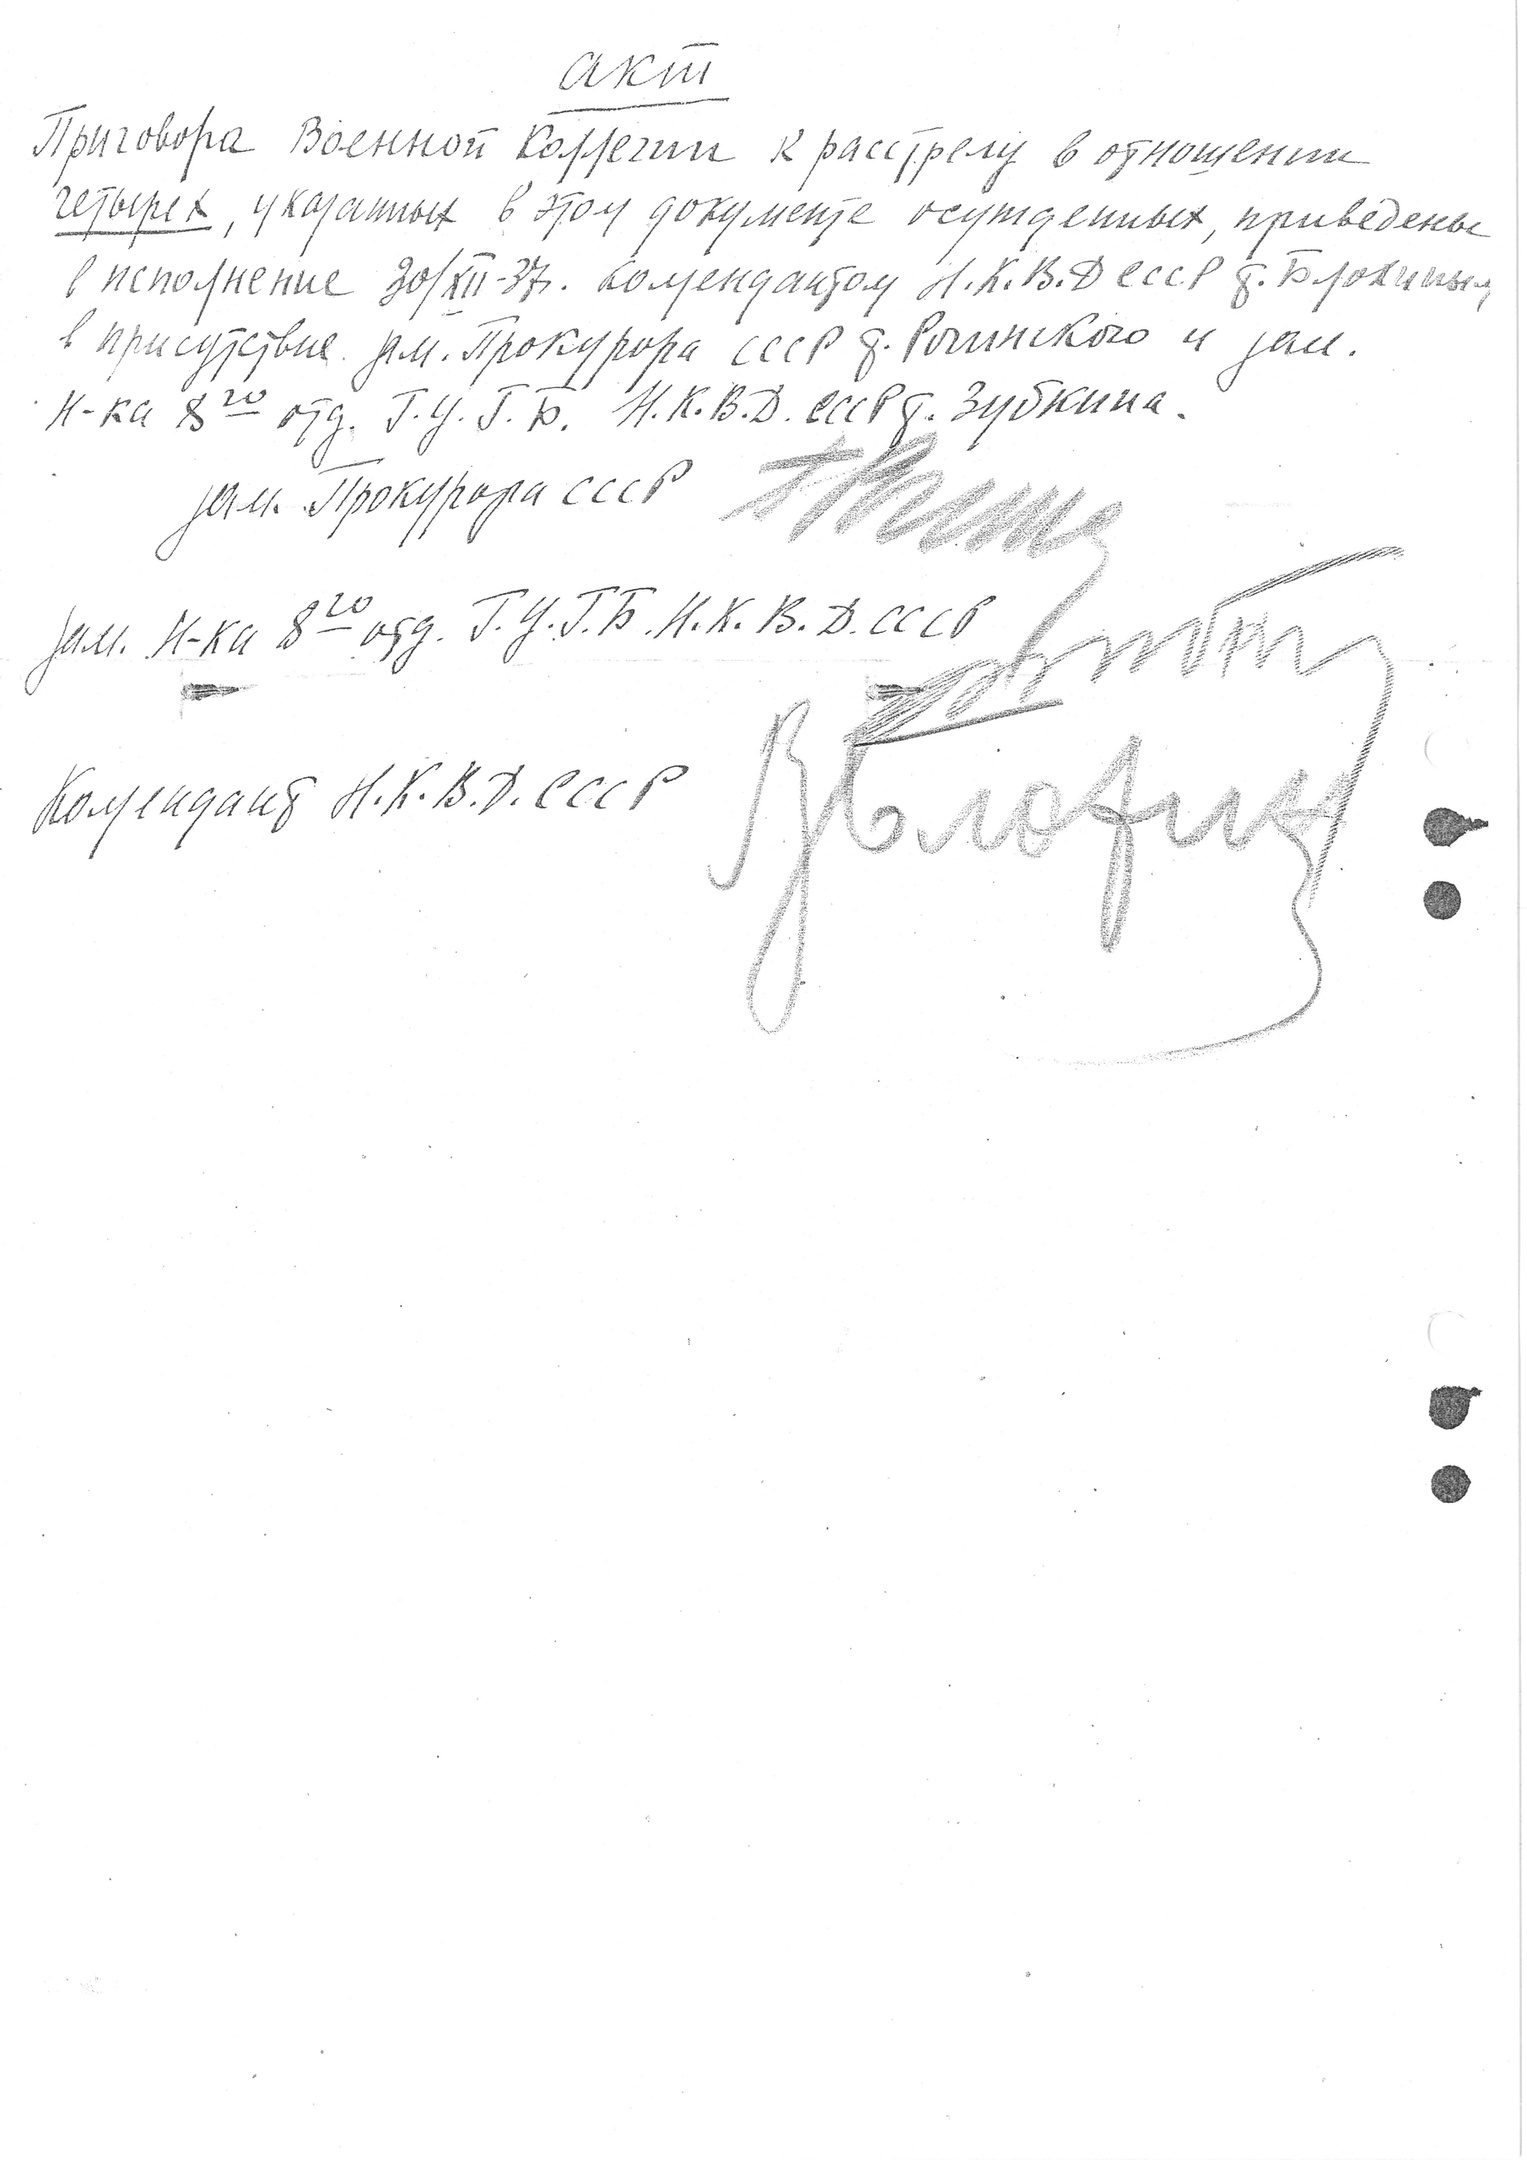 Акт
Приговора Военной Коллегии к расстрелу в отношении
четырех, указанных в этом документе осужденных, приведены
в исполнение 30/XII-37г. комендантом Н.К.В.Д СССР т. Блохиным,
в присутствие зам. Прокурора СССР т. Рогинского и зам.
Н-ка 8го отд. Г.У.Г.Б. Н.К.В.Д. СССР т. Зубкина.
зам. Прокурора СССР
зам. Н-ка 8го отд. Г.У.Г.Б. Н.К.В.Д. СССР
Комендант Н.К.В.Д. СССР
В Блохин